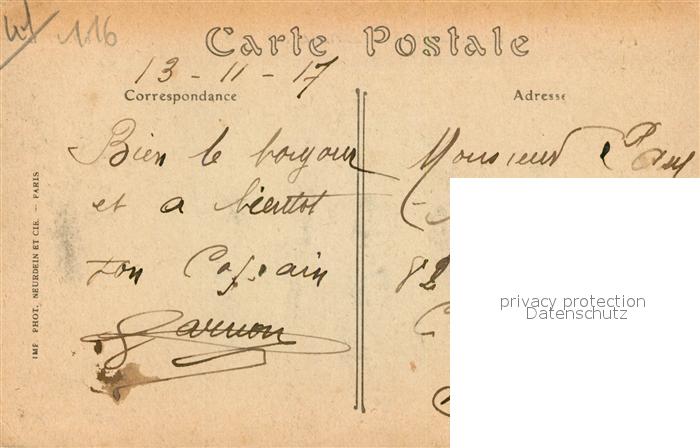 116
Carte Postale
13 - 11 - 17
Correspondance
Adresse
Bien le bonjour
et a bientot
ton Copain
Garnon
Monsieur Paul
82
privacy protection
Datenschutz
IMP. PHOT. NEURDEIN ET CIE. — PARIS